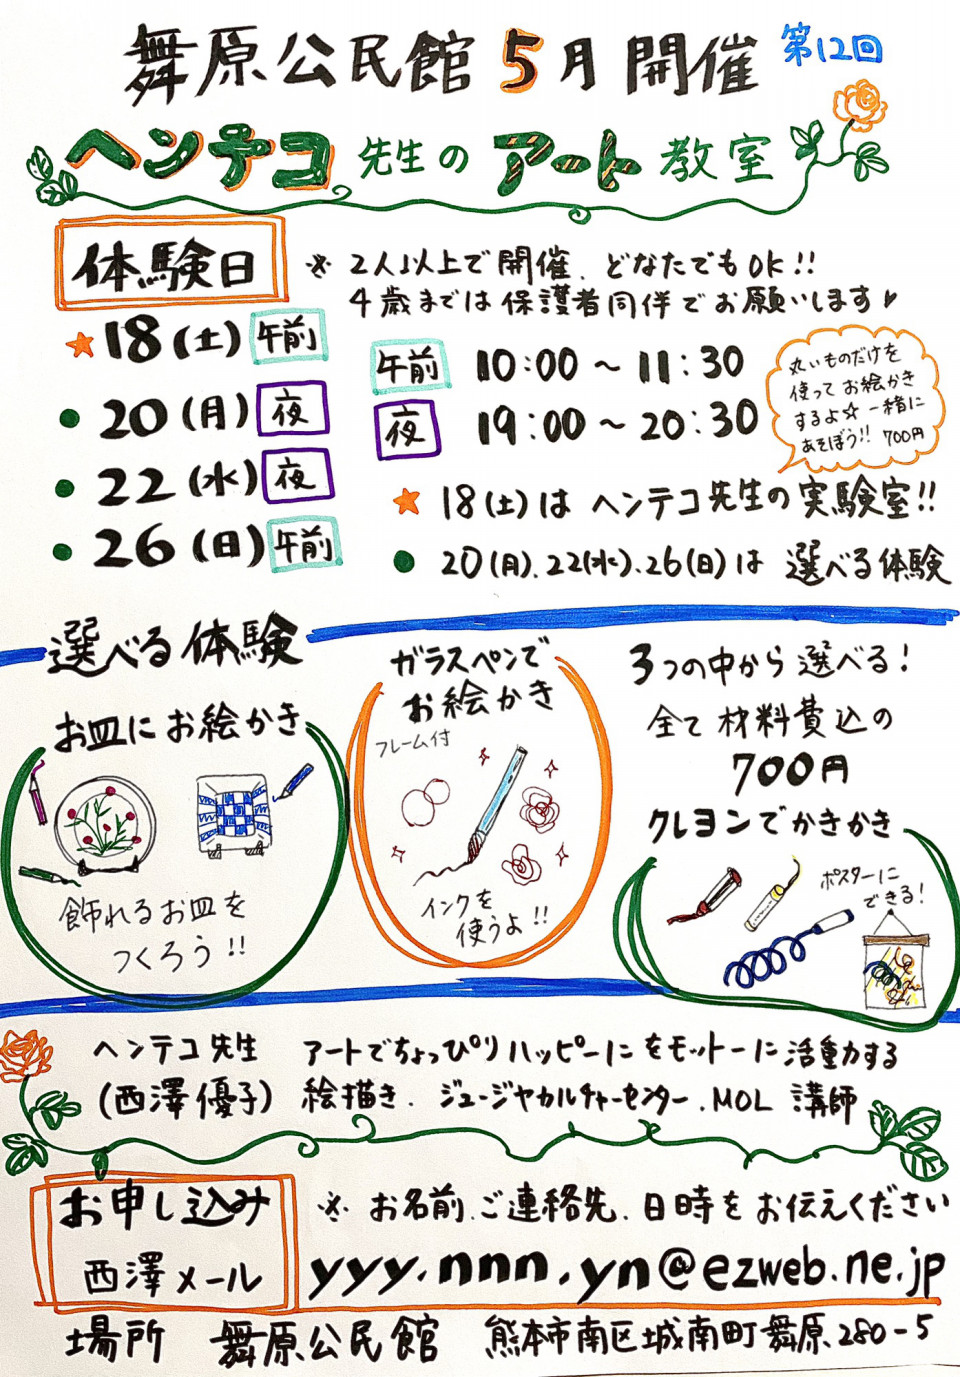 舞原公民館5月開催 第12回
ヘンテコ先生のアート教室
体験日
※2人以上で開催、どなたでもOK!!
4歳までは保護者同伴でお願いします
★18(土)午前
●20(月)夜
●22(水)夜
●26(日)午前
午前 10:00〜11:30
夜 19:00〜20:30
丸いものだけを
使ってお絵かき
するよ☆一緒に
あそぼう!! 700円
★18(土)はヘンテコ先生の実験室!!
●20(月)、22(水)、26(日)は選べる体験
選べる体験
お皿にお絵かき
飾れるお皿を
つくろう!!
ガラスペンで
お絵かき
フレーム付
インクを
使うよ!!
3つの中から選べる!
全て材料費込の
700円
クレヨンでかきかき
ポスターに
できる!
ヘンテコ先生 アートでちょっぴりハッピーにをモットーに活動する
(西澤優子) 絵描き.ジュージヤカルチャーセンター.MOL講師
お申し込み ※お名前、ご連絡先、日時をお伝えください
西澤メール yyy.nnn.yn@ezweb.ne.jp
場所 舞原公民館 熊本市南区城南町舞原280-5